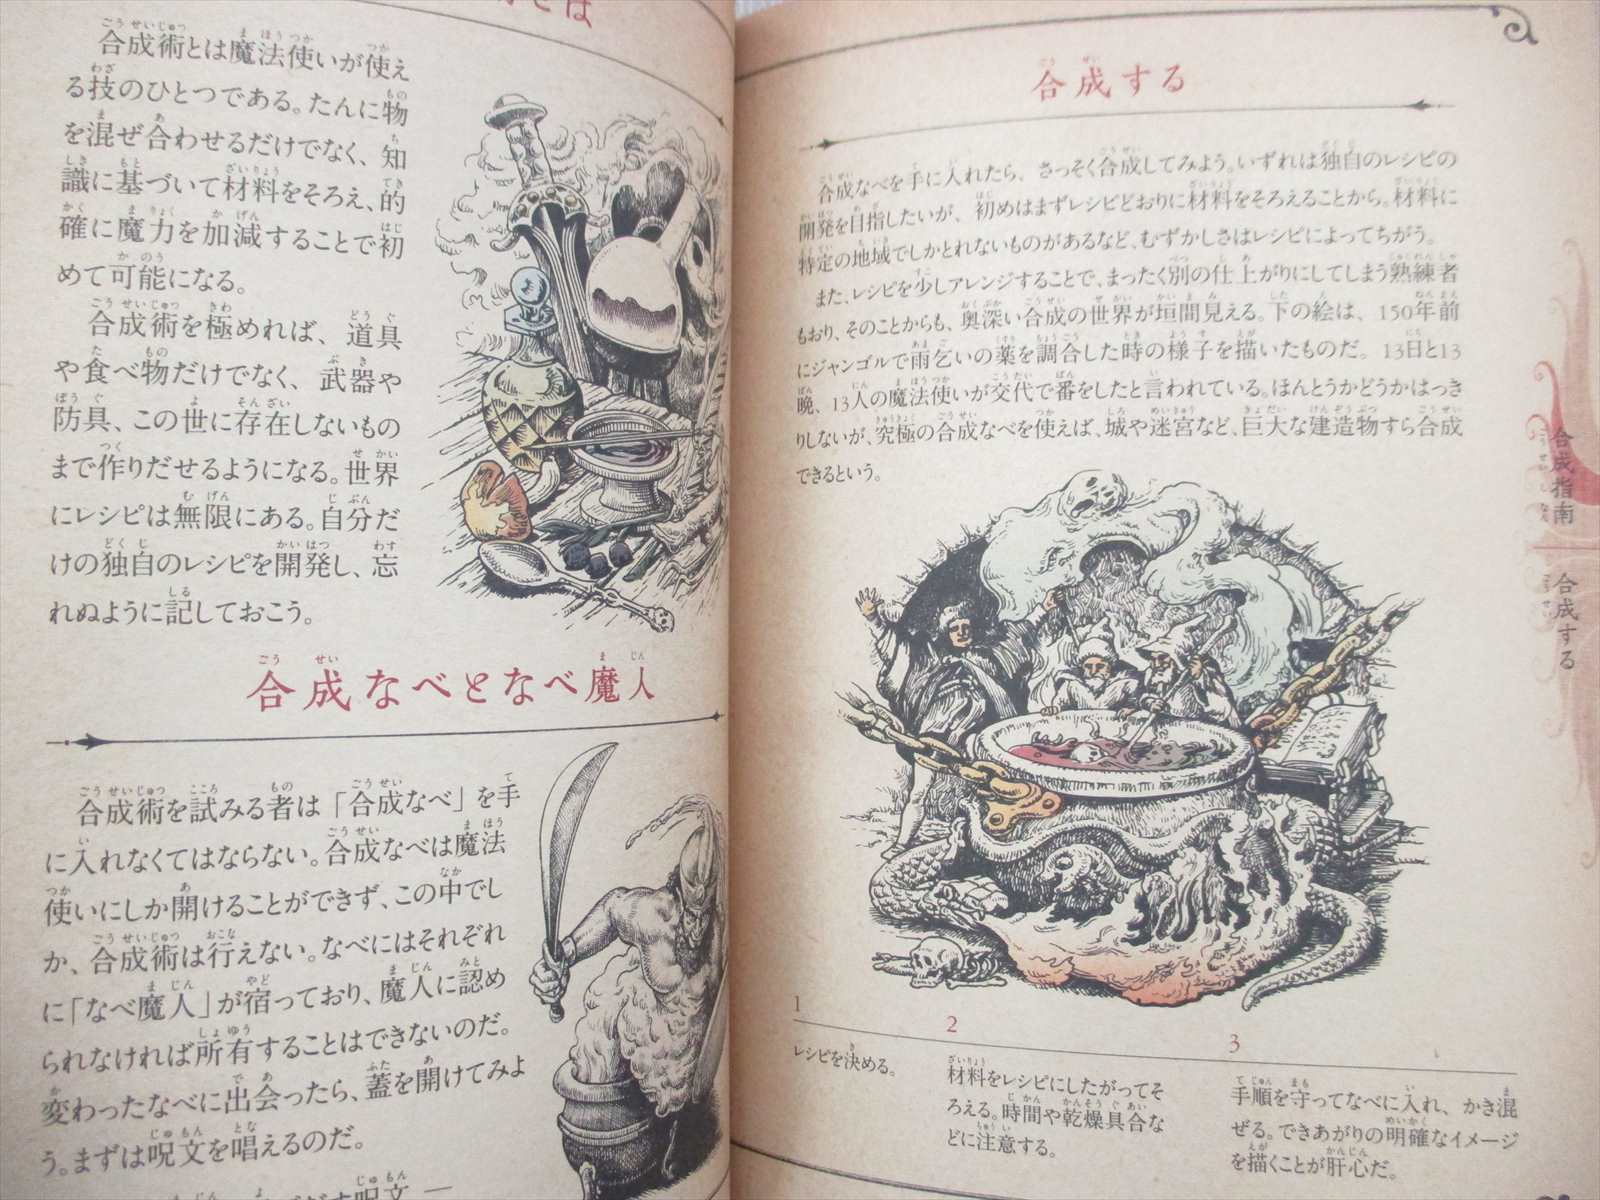 とは
合成術とは魔法使いが使え
る技のひとつである。たんに物
を混ぜ合わせるだけでなく、知
識に基づいて材料をそろえ、的
確に魔力を加減することで初
めて可能になる。
合成術を極めれば、道具
や食べ物だけでなく、武器や
防具、この世に存在しないもの
まで作りだせるようになる。世界
にレシピは無限にある。自分だ
けの独自のレシピを開発し、忘
れぬように記しておこう。
合成なべとなべ魔人
合成術を試みる者は「合成なべ」を手
に入れなくてはならない。合成なべは魔法
使いにしか開けることができず、この中でし
か、合成術は行えない。なべにはそれぞれ
に「なべ魔人」が宿っており、魔人に認め
られなければ所有することはできないのだ。
変わったなべに出会ったら、蓋を開けてみよ
う。まずは呪文を唱えるのだ。
合成する
合成なべを手に入れたら、さっそく合成してみよう。いずれは独自のレシピの
開発を目指したいが、初めはまずレシピどおりに材料をそろえることから。材料に
特定の地域でしかとれないものがあるなど、むずかしさはレシピによってちがう。
また、レシピを少しアレンジすることで、まったく別の仕上がりにしてしまう熟練者
もおり、そのことからも、奥深い合成の世界が垣間見える。下の絵は、150年前
にジャンゴルで雨乞いの薬を調合した時の様子を描いたものだ。13日と13
晩、13人の魔法使いが交代で番をしたと言われている。ほんとうかどうかはっき
りしないが、究極の合成なべを使えば、城や迷宮など、巨大な建造物すら合成
できるという。
1
レシピを決める。
2
材料をレシピにしたがってそ
ろえる。時間や乾燥具合な
どに注意する。
3
手順を守ってなべに入れ、かき混
ぜる。できあがりの明確なイメージ
を描くことが肝心だ。
合成指南
合成する